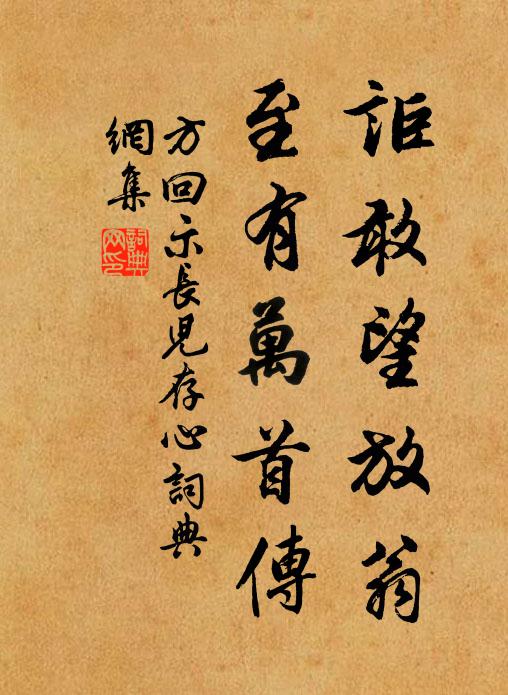 詎敢望放翁
至有萬首傳
方回示長兒存心詞典
網集
詞典
网印